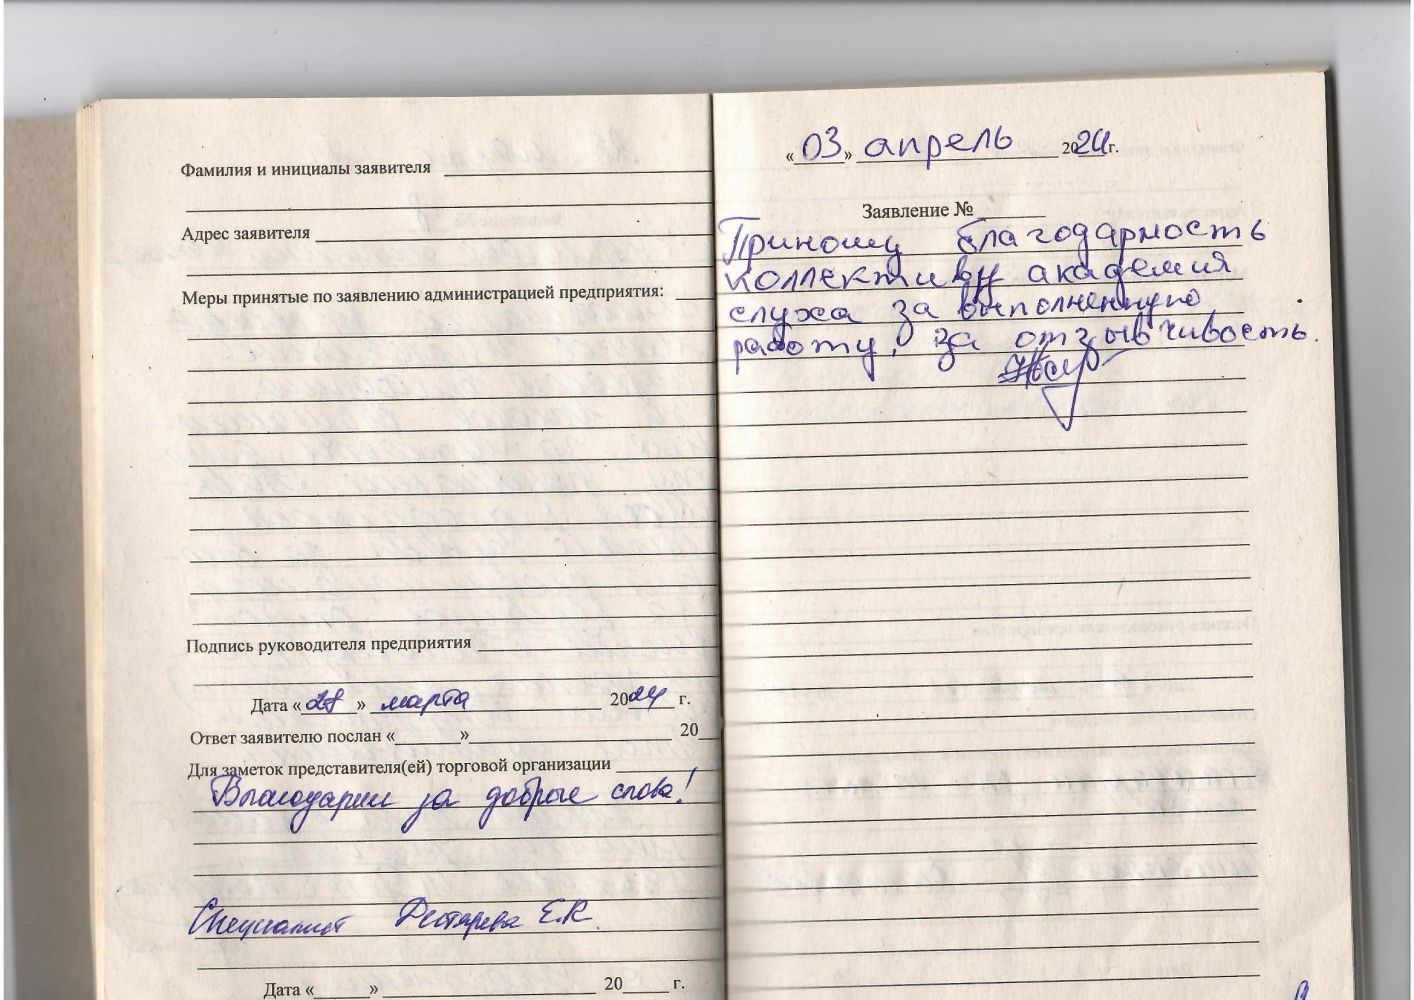 Фамилия и инициалы заявителя
Адрес заявителя
Меры принятые по заявлению администрацией предприятия:
Подпись руководителя предприятия
Дата «28» марта 2024 г.
Ответ заявителю послан «    »     20
Для заметок представителя(ей) торговой организации
Благодарим за добрые слова!
Специалист Е.К.
Дата «    »     20    г.
«03» апрель 2024г.
Заявление №
Приношу благодарность
коллективу академия
слуха за выполненную
работу, за отзывчивость.